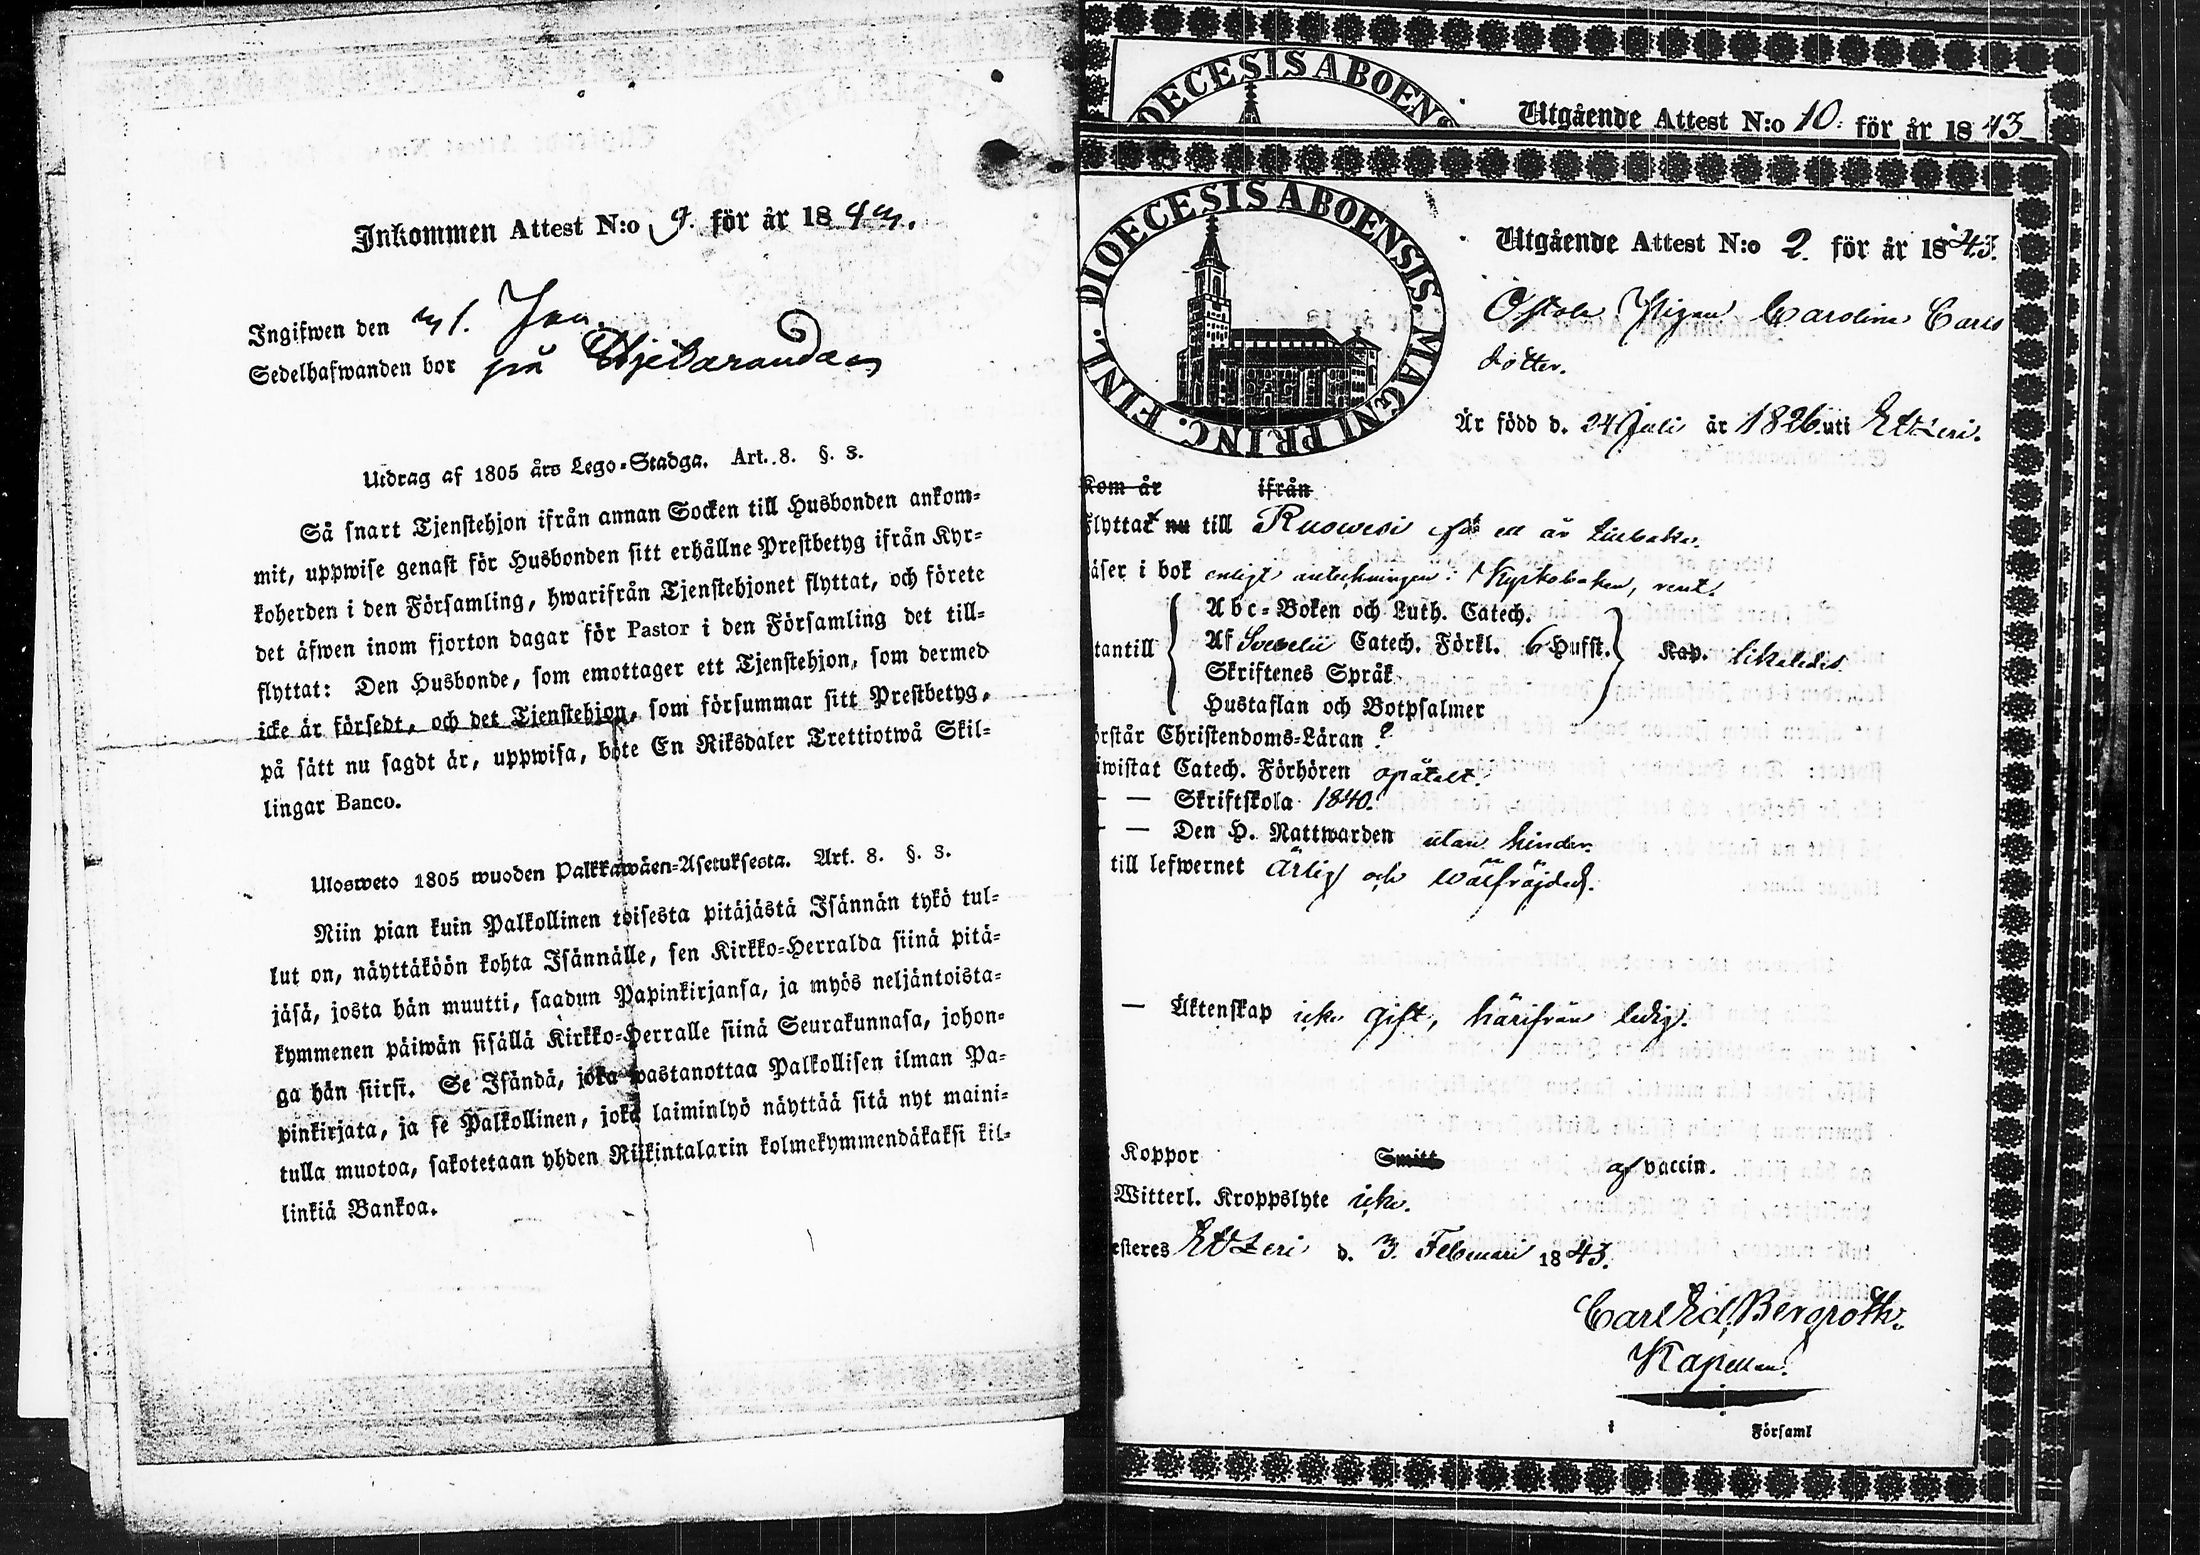 Inkommen Attest N:o 9. för år 1843.
Ingifwen den
Sedelhafwanden bor på
Utdrag af 1805 års Lego-Stadga. Art. 8. §. 3.
Så snart Tjenstehjon ifrån annan Socken till Husbonden ankom-
mit, uppwise genast för Husbonden sitt erhållne Prestbetyg ifrån Kyr-
koherden i den Församling, hwarifrån Tjenstehjonet flyttat, och förete
det äfwen inom fjorton dagar för Pastor i den Församling det till-
flyttat: Den Husbonde, som emottager ett Tjenstehjon, som dermed
icke är försedt, och det Tjenstehjon, som försummar sitt Prestbetyg,
på sätt nu sagdt är, uppwisa, böte En Riksdaler Trettiotwå Skil-
lingar Banco.
Ulosweto 1805 wuoden Palkkawäen-Asetuksesta. Art. 8. §. 3.
Niin pian kuin Palkollinen toisesta pitäjästä Isännän tykö tul-
lut on, näyttäköön kohta Isännälle, sen Kirkko-Herralda siinä pitä-
jäsä, josta hän muutti, saadun Papinkirjansa, ja myös neljäntoista-
kymmenen päiwän sisällä Kirkko-Herralle siinä Seurakunnasa, johon-
ga hän siirsi. Se Isändä, joka wastanottaa Palkollisen ilman Pa-
pinkirjata, ja se Palkollinen, joka laiminlyö näyttää sitä nyt maini-
tulla muotoa, sakotetaan yhden Riikintalarin kolmekymmendäkaksi kil-
linkiä Bankoa.
DIOECESIS ABOENS
Utgående Attest N:o 10. för år 1843
DIOECESIS ABOENSIS. MAGNI PRINC. FINL.
Utgående Attest N:o 2. för år 1843.
Pigan Carolina Carls
dotter.
Är född d. 24 Juli år 1826. uti Etzeri.
Kom år ifrån
Flyttar nu till Ruowesi för ett år tillbaka.
äser i bok enligt anteckningen i Kyrkoboken, rent.
Abc-Boken och Luth. Catech.
tantill Af Svebelii Catech. Förkl. 6 Hufst. Kap. likaledes
Skriftenes Språk
Hustaflan och Botpsalmer
örstår Christendoms-Läran ?
iwistat Catech. Förhören opåtalt.
— — Skriftskola 1840.
— — Den H. Nattwarden utan hinder.
till lefwernet ärlig och wälfräjdad.
— Äktenskap icke gift, härifrån ledig.
Koppor Smitt af vaccin.
Witterl. Kroppslyte icke.
esteres Etzeri d. 3. Februari 1843.
Carl Ed. Bergroth.
Kapellan.
Församl